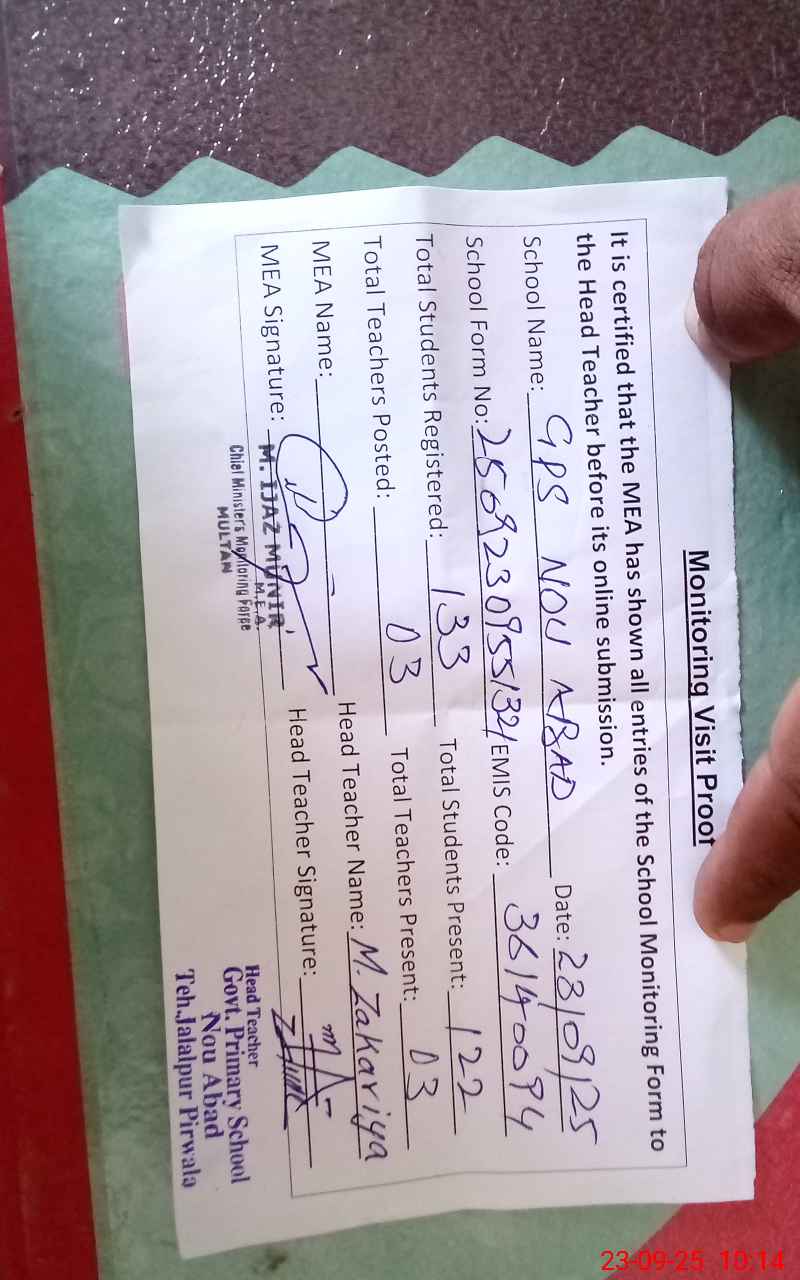 Monitoring Visit Proof
It is certified that the MEA has shown all entries of the School Monitoring Form to
the Head Teacher before its online submission.
School Name: GPS NOU ABAD Date: 23/09/25
School Form No: EMIS Code: 36140094
Total Students Registered: 133 Total Students Present: 122
Total Teachers Posted: 03 Total Teachers Present: 03
MEA Name: Head Teacher Name: M. Zakariya
MEA Signature: Head Teacher Signature:
M. IJAZ MUNIR
M.E.A.
Chief Minister's Monitoring Force
MULTAN
Head Teacher
Govt. Primary School
Nou Abad
Teh. Jalalpur Pirwala
23-09-25 10:14